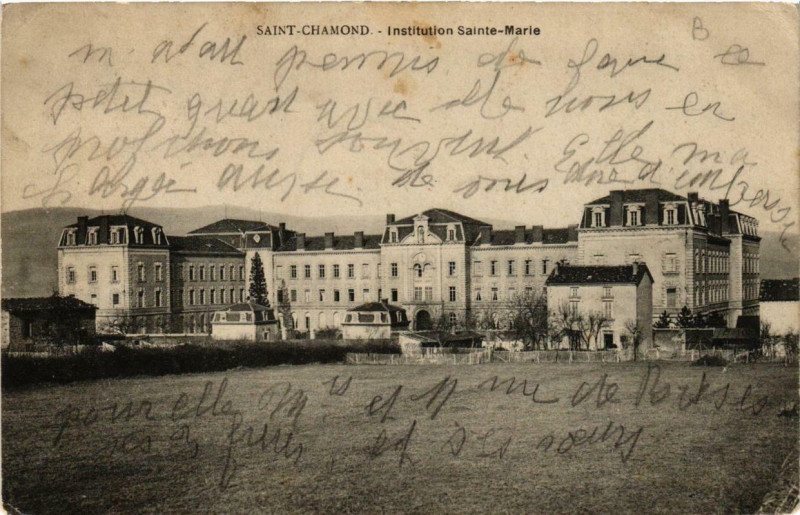 SAINT-CHAMOND. - Institution Sainte-Marie
B
m'a permis de faire ce
petit quart avec elle nous en
profitons souvent. Elle m'a
chargée aussi de vous dire d'embrasser
pour elle Mr et Mme de
ses 2 fils et ses sœurs